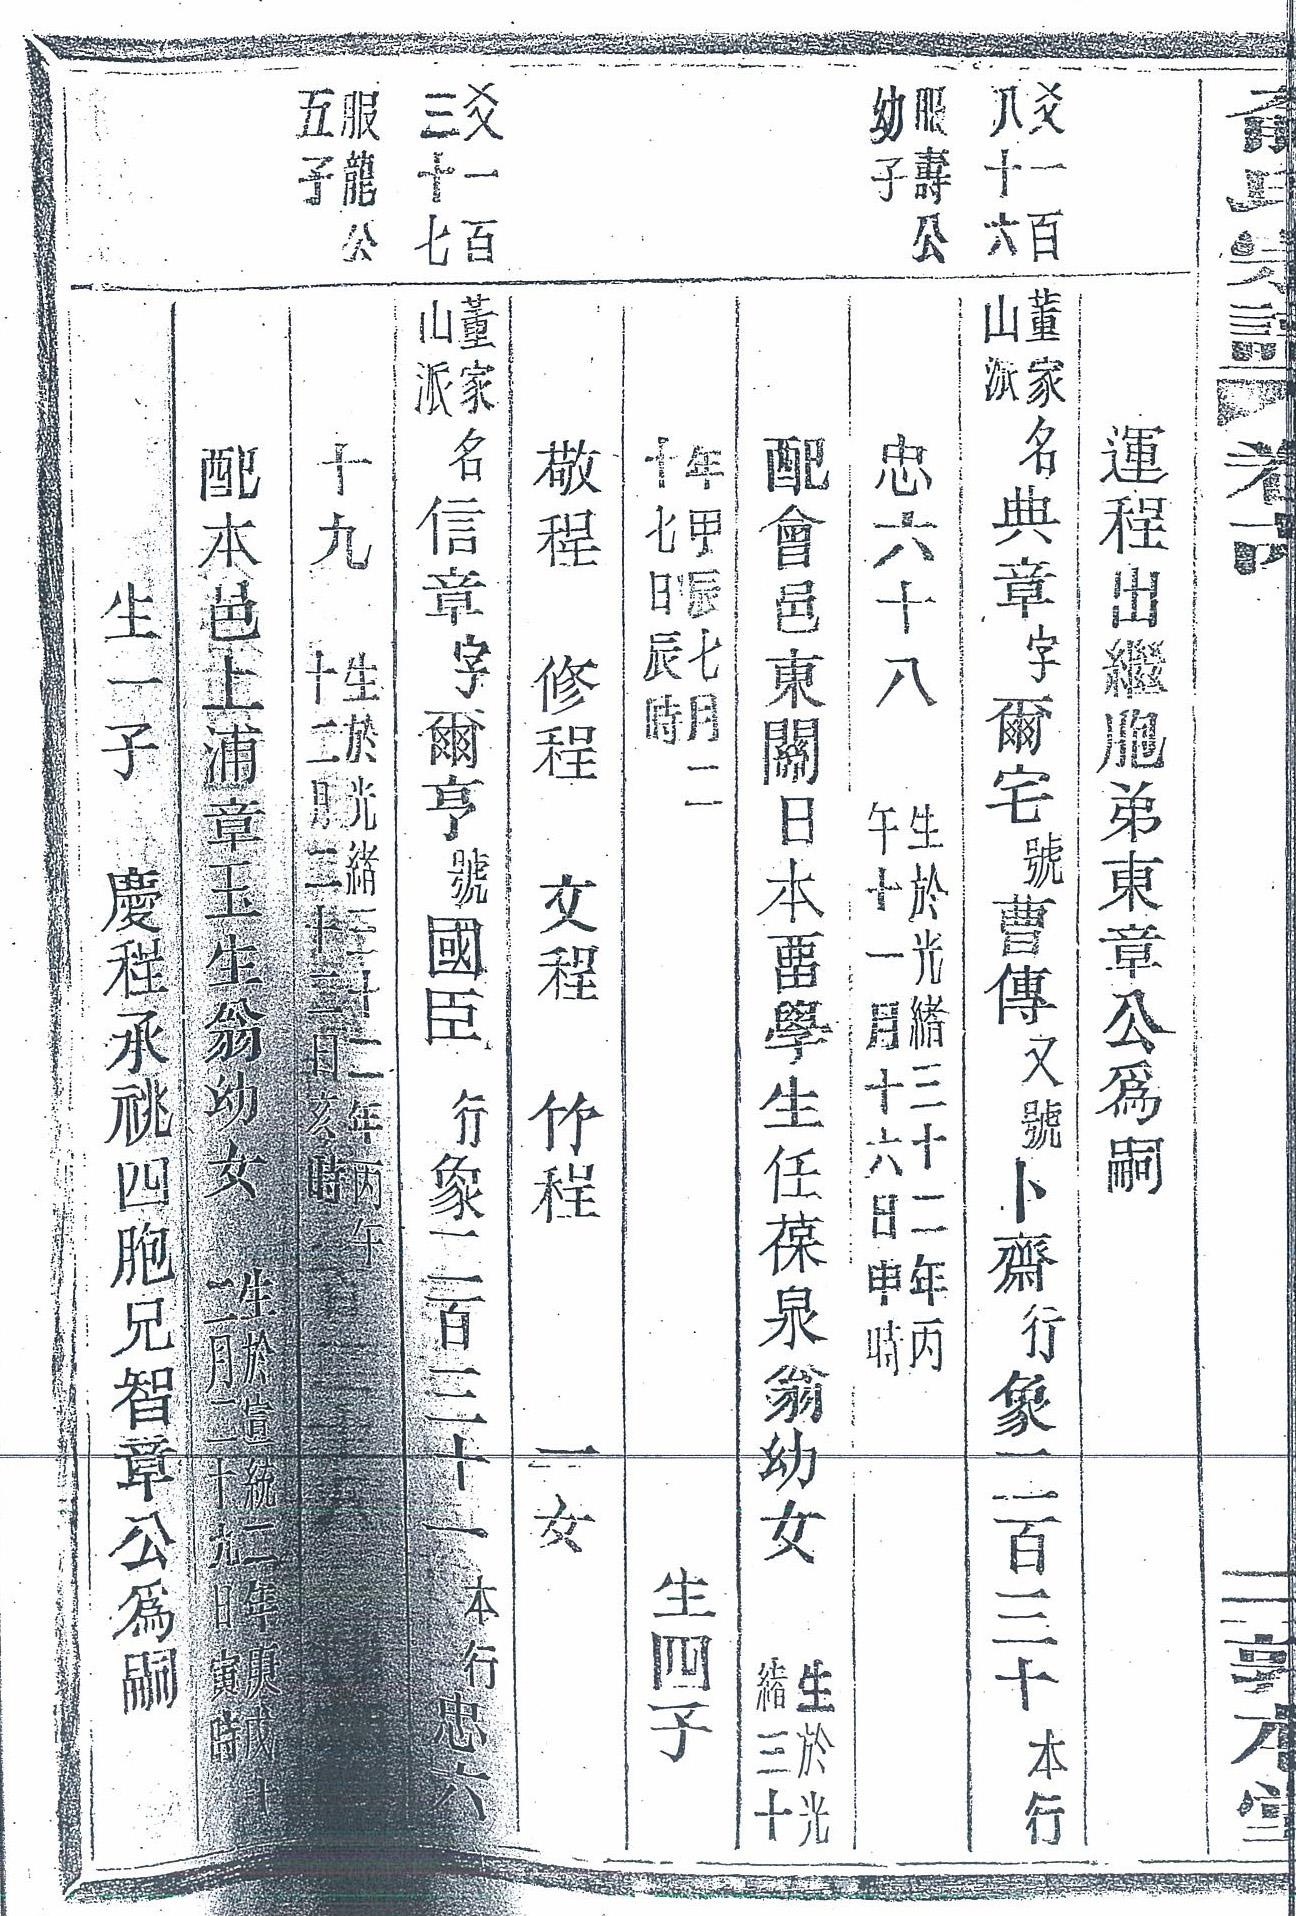 俞氏宗譜 卷六 敦本堂
運程出繼胞弟東章公爲嗣
爻一百八十六
董家山派名典章字爾宅號曹傳又號卜齋行象一二百三十本行
服壽公幼子
忠六十八 生於光緒三十二年丙午十一月十六日申時
配會邑東關日本畱學生任葆泉翁幼女 生於光緒三十
年甲辰七月二十七日辰時 生四子
敬程 修程 文程 竹程 一女
爻一百三十七
董家山派名信章字爾亨號國臣 行象一二百三十一本行忠六
服龍公五子
十九 生於光緒三十二年丙午十二月二十三日亥時
配本邑上浦章玉生翁幼女 生於宣統二年庚戌十二月二十九日寅時
生一子 慶程承祧四胞兄智章公爲嗣